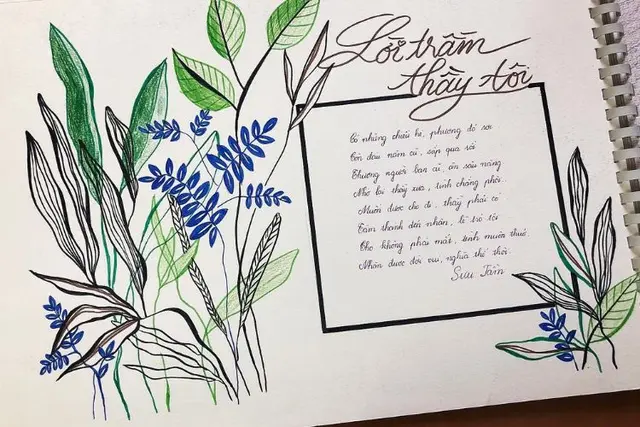 Lời trầm
thầy tôi
Có những chiều hè, phượng đỏ rơi
Còn đâu năm cũ, sắp qua rồi
Thương người bạn cũ, ân sâu nặng
Nhớ lời thầy xưa, tình chẳng phôi
Mười được cho đi, thầy phải có
Tâm thành đời nhân, lẽ trò tôi
Cho không phải mất, tính muôn thuở
Nhân được đời vui, nghĩa thế thôi.
Sưu Tầm